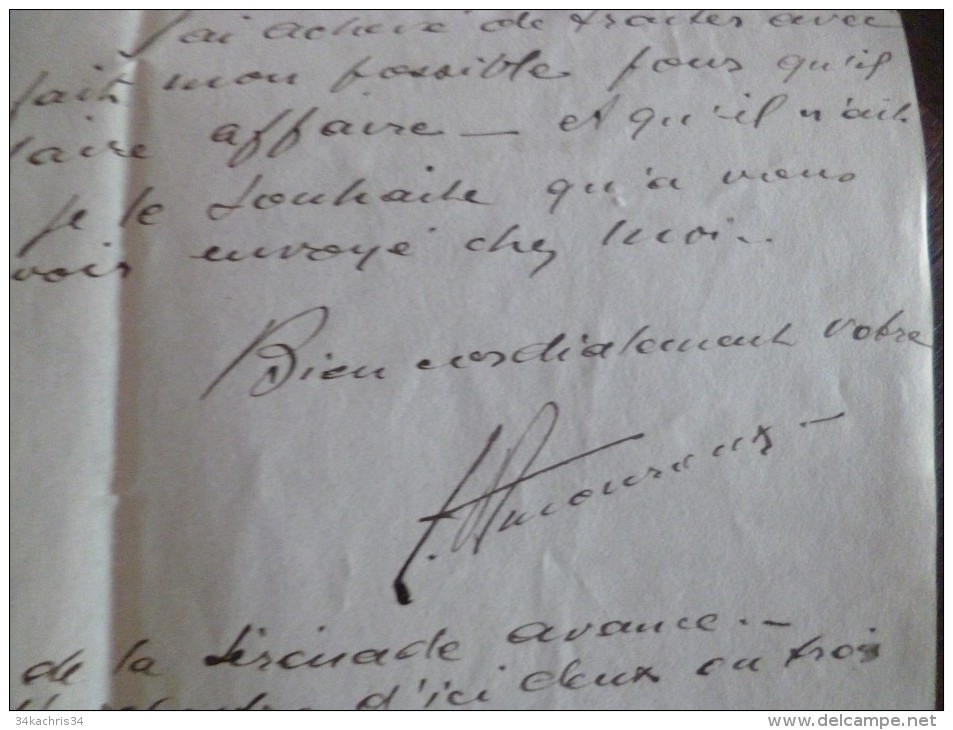 J'ai achevé de traiter avec
fait mon possible pour qu'il
faire affaire — et qu'il n'ait
je le souhaite qu'à vous
voir envoyé chez moi..
Bien cordialement votre
de la Sérénade avance.–
d'ici deux ou trois
34kachris34
www.delcampe.net